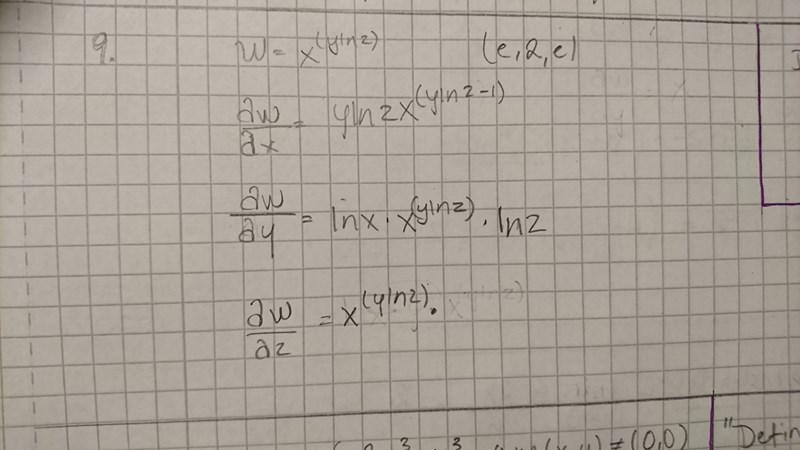 9. w = x^(y ln z) (e, 2, e)
∂w/∂x = y ln z x^(y ln z - 1)
∂w/∂y = ln x · x^(y ln z) · ln z
∂w/∂z = x^(y ln z) ·
= (0,0) "Defin